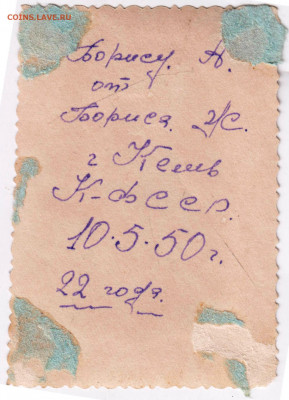 COINS.LAVE.RU
Борису. А.
от
Бориса. Ж.
г Кемь
К-Ф ССР.
10.5.50 г.
22 года.